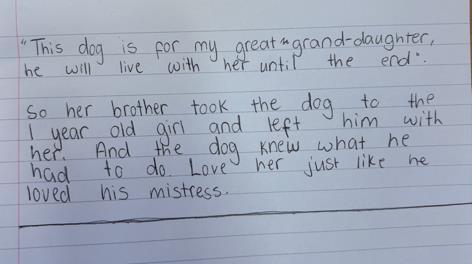 "This dog is for my great-grand-daughter,
he will live with her until the end".
So her brother took the dog to the
1 year old girl and left him with
her. And the dog knew what he
had to do. Love her just like he
loved his mistress.